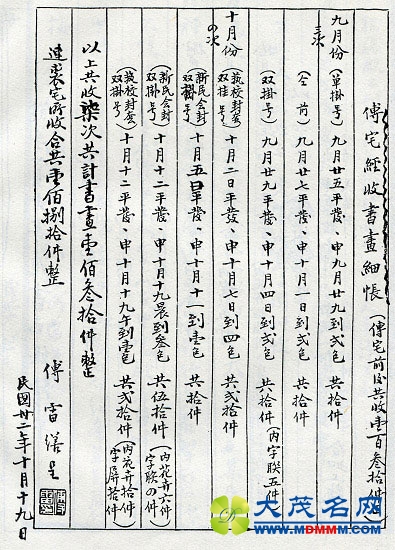 傅宅經收書畫細帳（傅宅前後共收壹百叁拾件）
九月份 三次
（單掛号）九月廿五平發、申九月廿九到弍包 共拾件
（仝前）九月廿七平發、申十月一日到弍包 共拾件
（双掛号）九月廿九平發、申十月四日到弍包 共拾件（內字联五件）
十月份 の次
（藝校封套双挂号）十月二日平發、申十月七日到四包 共弍拾件
（新民会封双掛号）十月五日平發、申十月十一到壹包 共拾件
（新民会封双掛号）十月十二平發、申十月十九晨到叁包 共伍拾件（內花卉六件字联の件）
（藝校封套双掛号）十月十二平發、申十月十九午到壹包 共弍拾件（內花卉拾件字屏拾件）
以上共收柒次共計書畫壹佰叁拾件整
連裘宅所收合共壹佰捌拾件整
傅雷 謹呈
民國卅二年十月十九日
大茂名网
WWW.MDMMM.COM